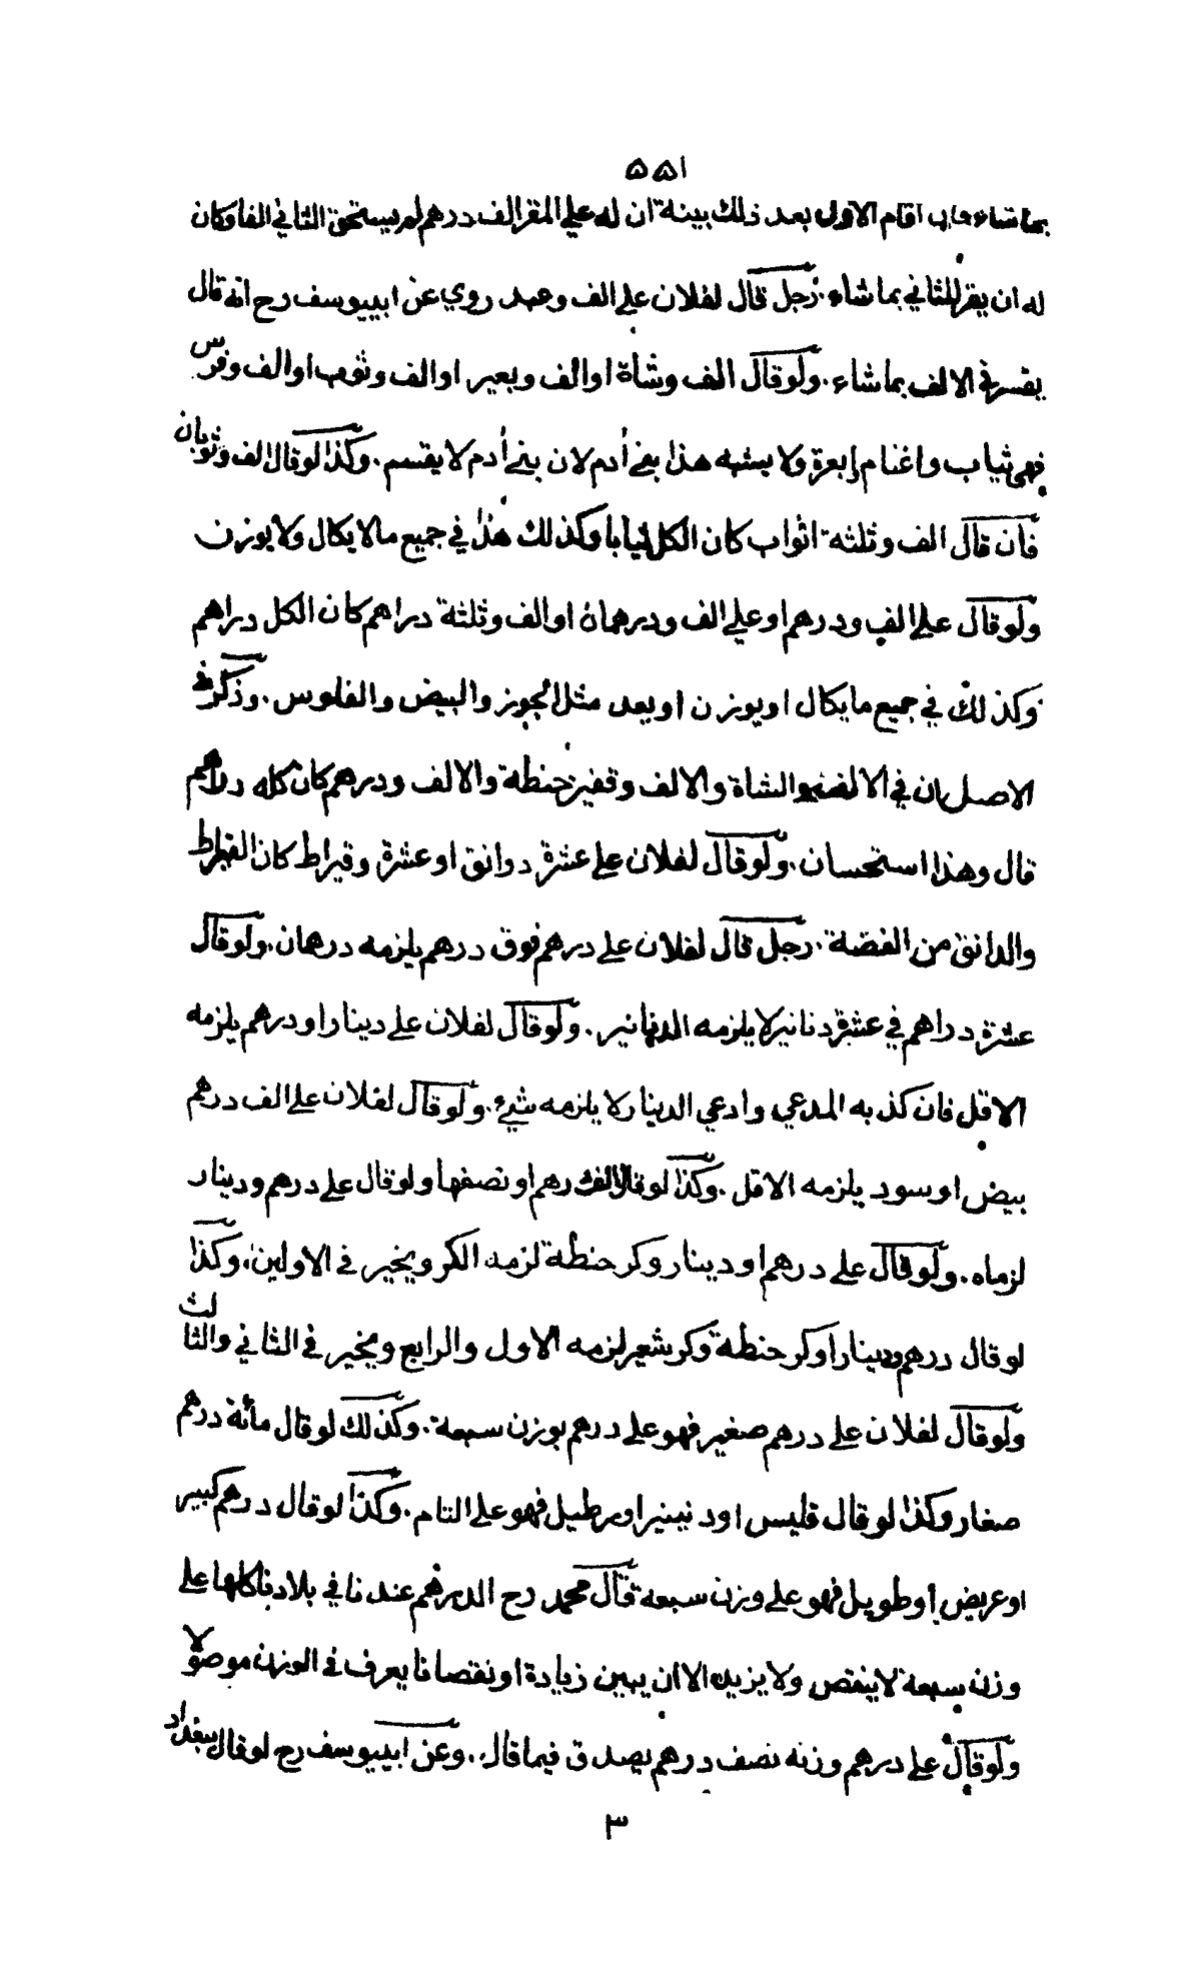 ٥٥١
بما شاء فان اقام الاول بعد ذلك بينة ان له علي المقر الف درهم لم يستحق الثاني الفا وكان
له ان يقر للثاني بما شاء . رجل قال لفلان علي الف وعبد روي عن ابييوسف رح انه قال
يفسر في الالف بما شاء . ولو قال الف وشاة او الف وبعير او الف وثوب او الف وفرس
فهي ثياب واغنام وابعرة ولا يشبه هذا بني أدم لان بني أدم لا يقسم . وكذا لو قال الف وثوبان
فان قال الف وثلثة اثواب كان الكل ثيابا وكذلك هذا في جميع ما لا يكال ولا يوزن
ولو قال علي الف ودرهم او علي الف ودرهمان او الف وثلثة دراهم كان الكل دراهم
وكذلك في جميع ما يكال او يوزن او يعد مثل الجوز والبيض والفلوس . وذكر في
الاصل ان في الالف والشاة والالف وقفيز حنطة والالف ودرهم كان كله دراهم
قال وهذا استحسان . ولو قال لفلان علي عشرة دوانق او عشرة وقيراط كان القيراط
والدانق من الفضة . رجل قال لفلان علي درهم فوق درهم يلزمه درهمان . ولو قال
عشرة دراهم في عشرة دنانير لا يلزمه الدنانير . ولو قال لفلان علي دينار او درهم يلزمه
الاقل فان كذبه المدعي وادعي الدينار لا يلزمه شيء . ولو قال لفلان علي الف درهم
بيض او سود يلزمه الاقل . وكذا لو قال الف درهم او نصفها ولو قال علي درهم ودينار
لزماه . ولو قال علي درهم او دينار وكر حنطة لزمه الكر ويخير في الاولين . وكذا
لو قال درهم ودينار او كر حنطة وكر شعير لزمه الاول والرابع ويخير في الثاني والثالث
ولو قال لفلان علي درهم صغير فهو علي درهم بوزن سبعة . وكذلك لو قال مائة درهم
صغار وكذا لو قال فليس او دنينير او رطيل فهو علي التام . وكذا لو قال درهم كبير
او عريض او طويل فهو علي وزن سبعة قال محمد رح الدرهم عندنا في بلادنا كلها علي
وزن سبعة لا ينقص ولا يزيد الا ان يبين زيادة او نقصانا يعرف في الوزن موصولا
ولو قال علي درهم وزنه نصف درهم يصدق فيما قال . وعن ابييوسف رح لو قال ببغداد
٣